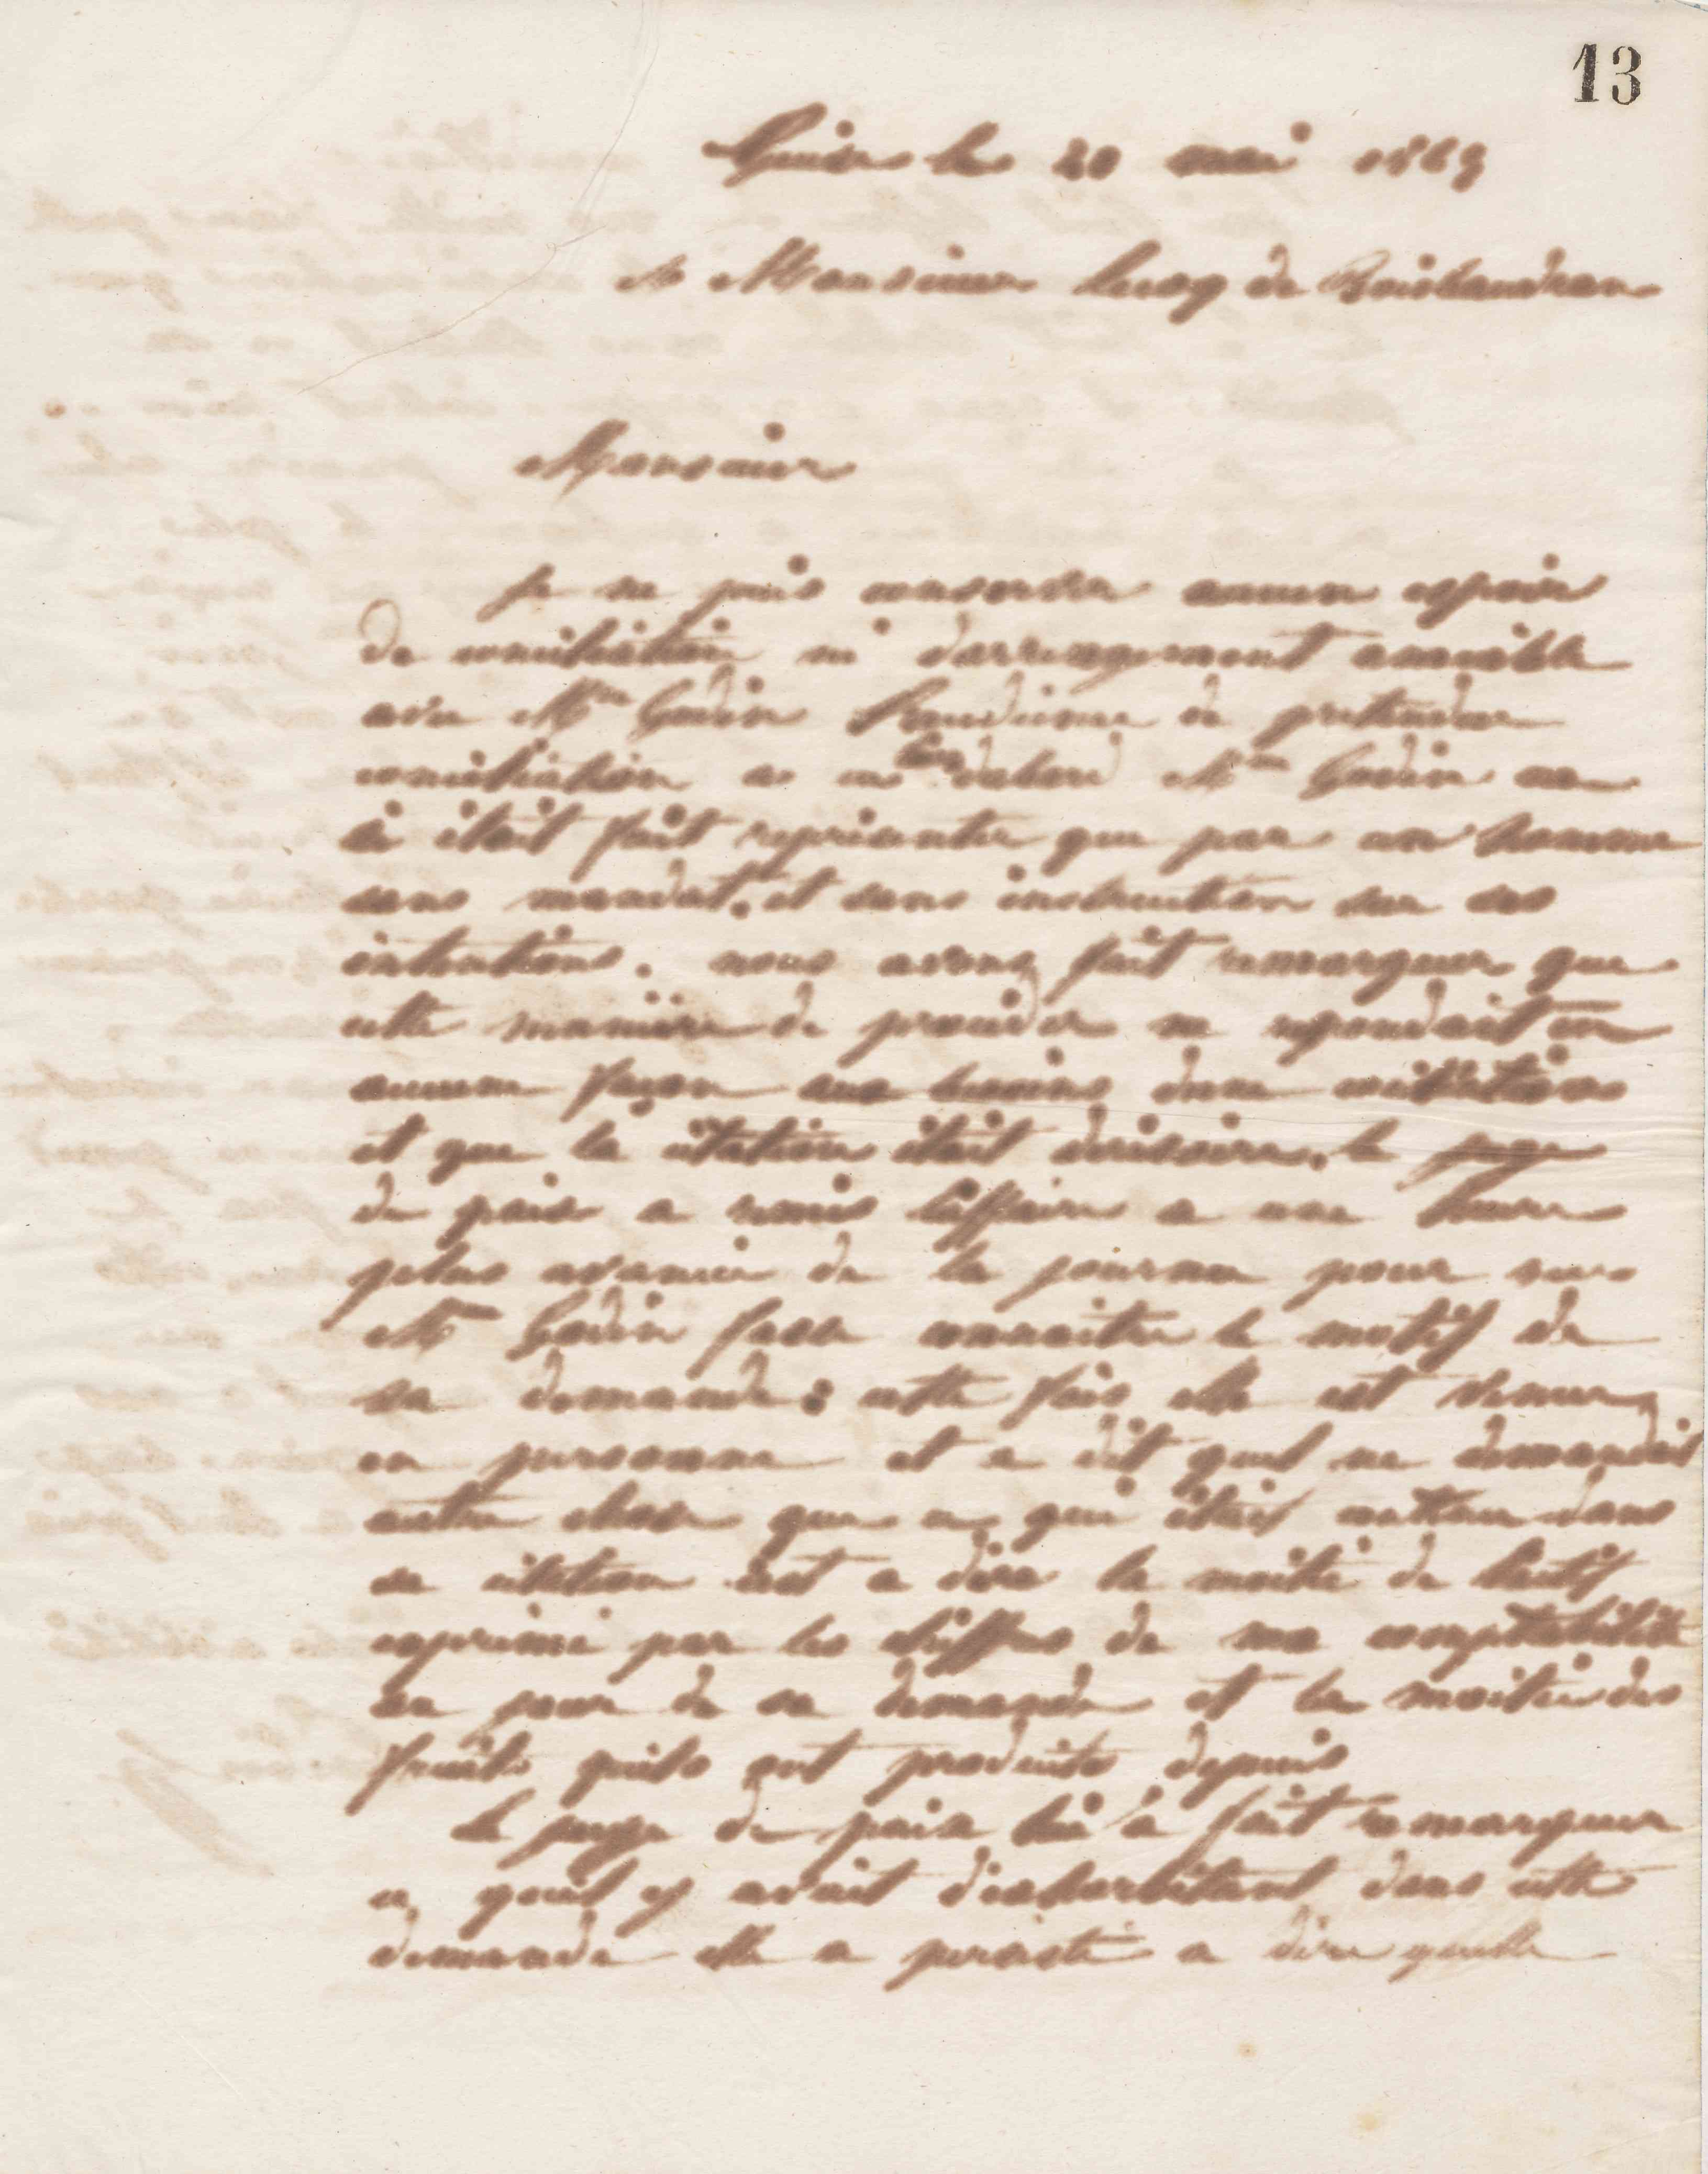 13
Guise le 20 mai 1869
A Monsieur Lecoq de Boisbaudran
Monsieur
Je ne puis conserver aucun espoir
de conciliation ni darrangement amiable
avec Mme Godin Laudience de pretendue
conciliation a eu lieu dabord Mme Godin ne
sè était fait représenter que par un homme
sans mandat et sans instruction sur ses
intentions. nous avons fait remarquer que
cette manière de procéder ne repondait en
aucune façon aux besoins dune conciliation
et que la citation était dérisoire. le juge
de paix a remis laffaire a une heure
plus avancée de la journee pour que
Mme Godin fasse connaitre le motif de
sa demande : cette fois elle est venue
en personne et a dit quel ne demandait
autre chose que ce qui était contenu dans
sa citation cest a dire la moitié de lactif
exprimé par les chiffres de ma comptabilité
au jour de sa demande et la moitié des
fruits quils ont produits depuis
le juge de paix lui a fait remarquer
ce quil y avait dexhorbitant dans cette
demande elle a persisté a dire quelle